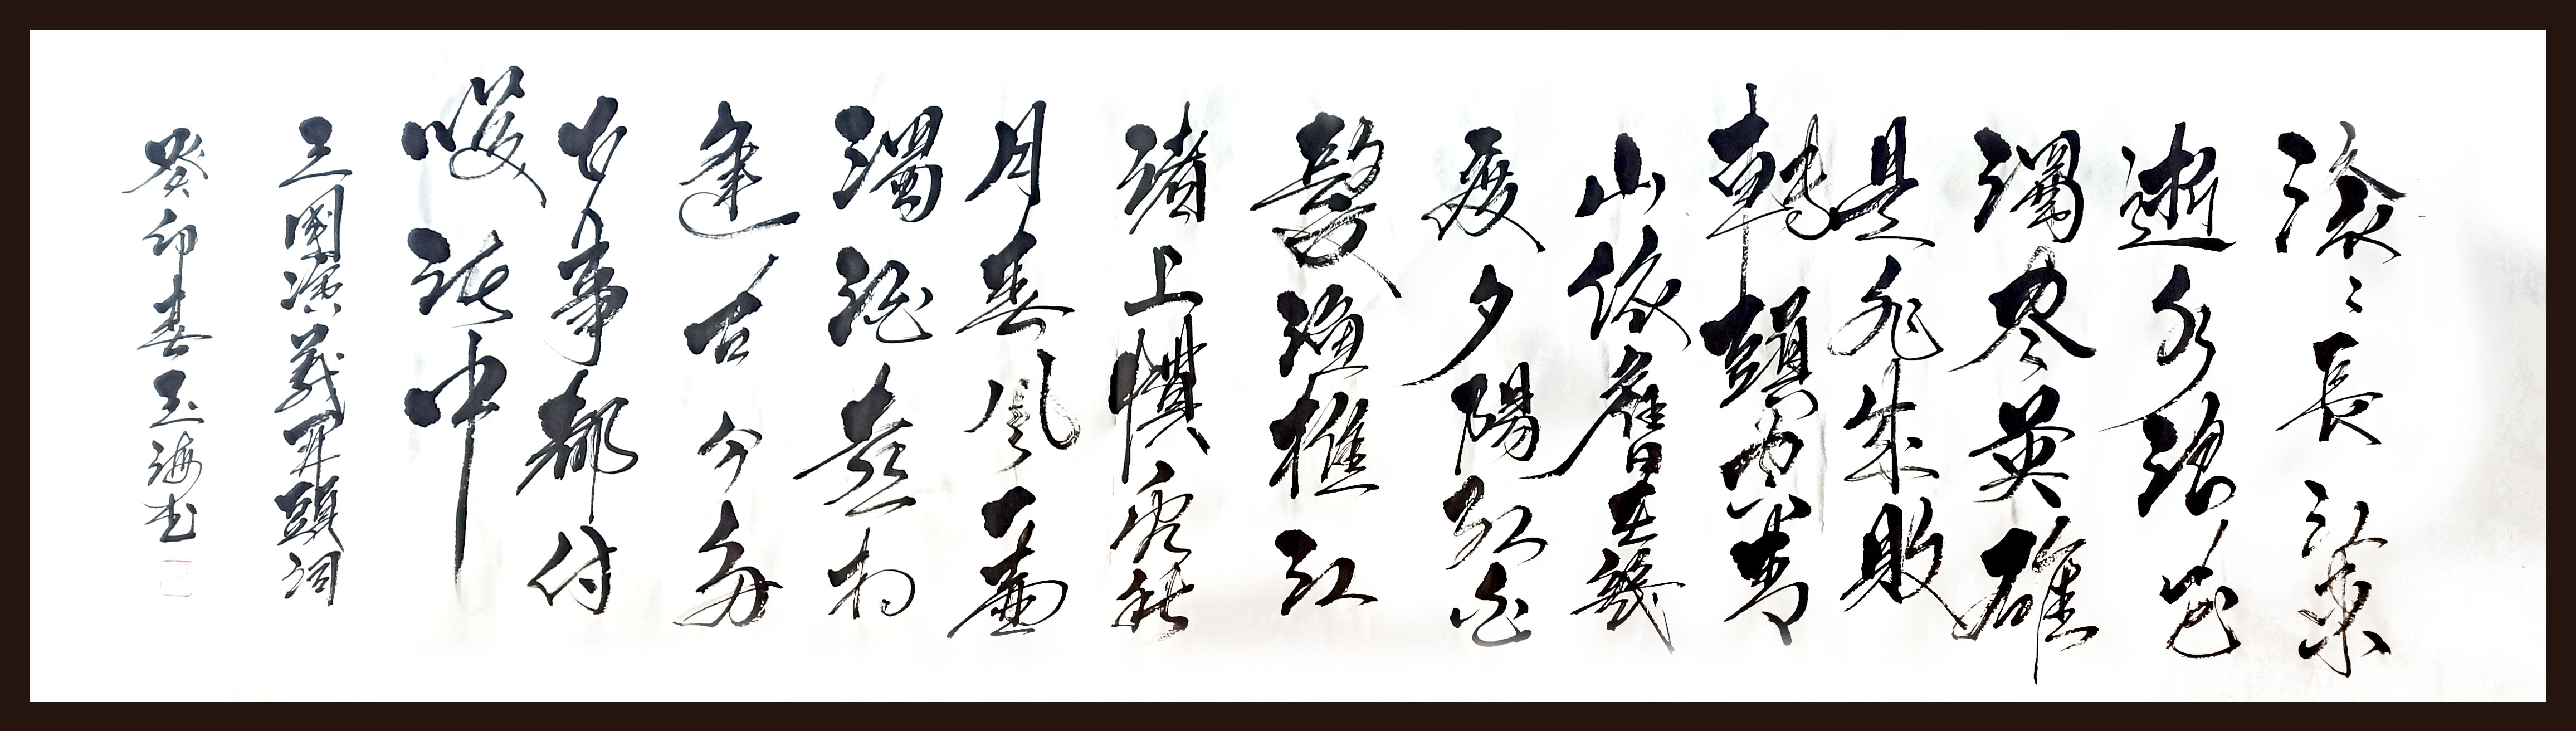 滾〻長江東
逝水浪花
濁尽英雄
是非成敗
轉頭空青
山依舊在幾
度夕陽紅白
髮漁樵江
渚上慣看秋
月春風一壺
濁酒喜相
逢古今多
少事都付
咲談中
三國演義開頭詞
癸卯春玉海书